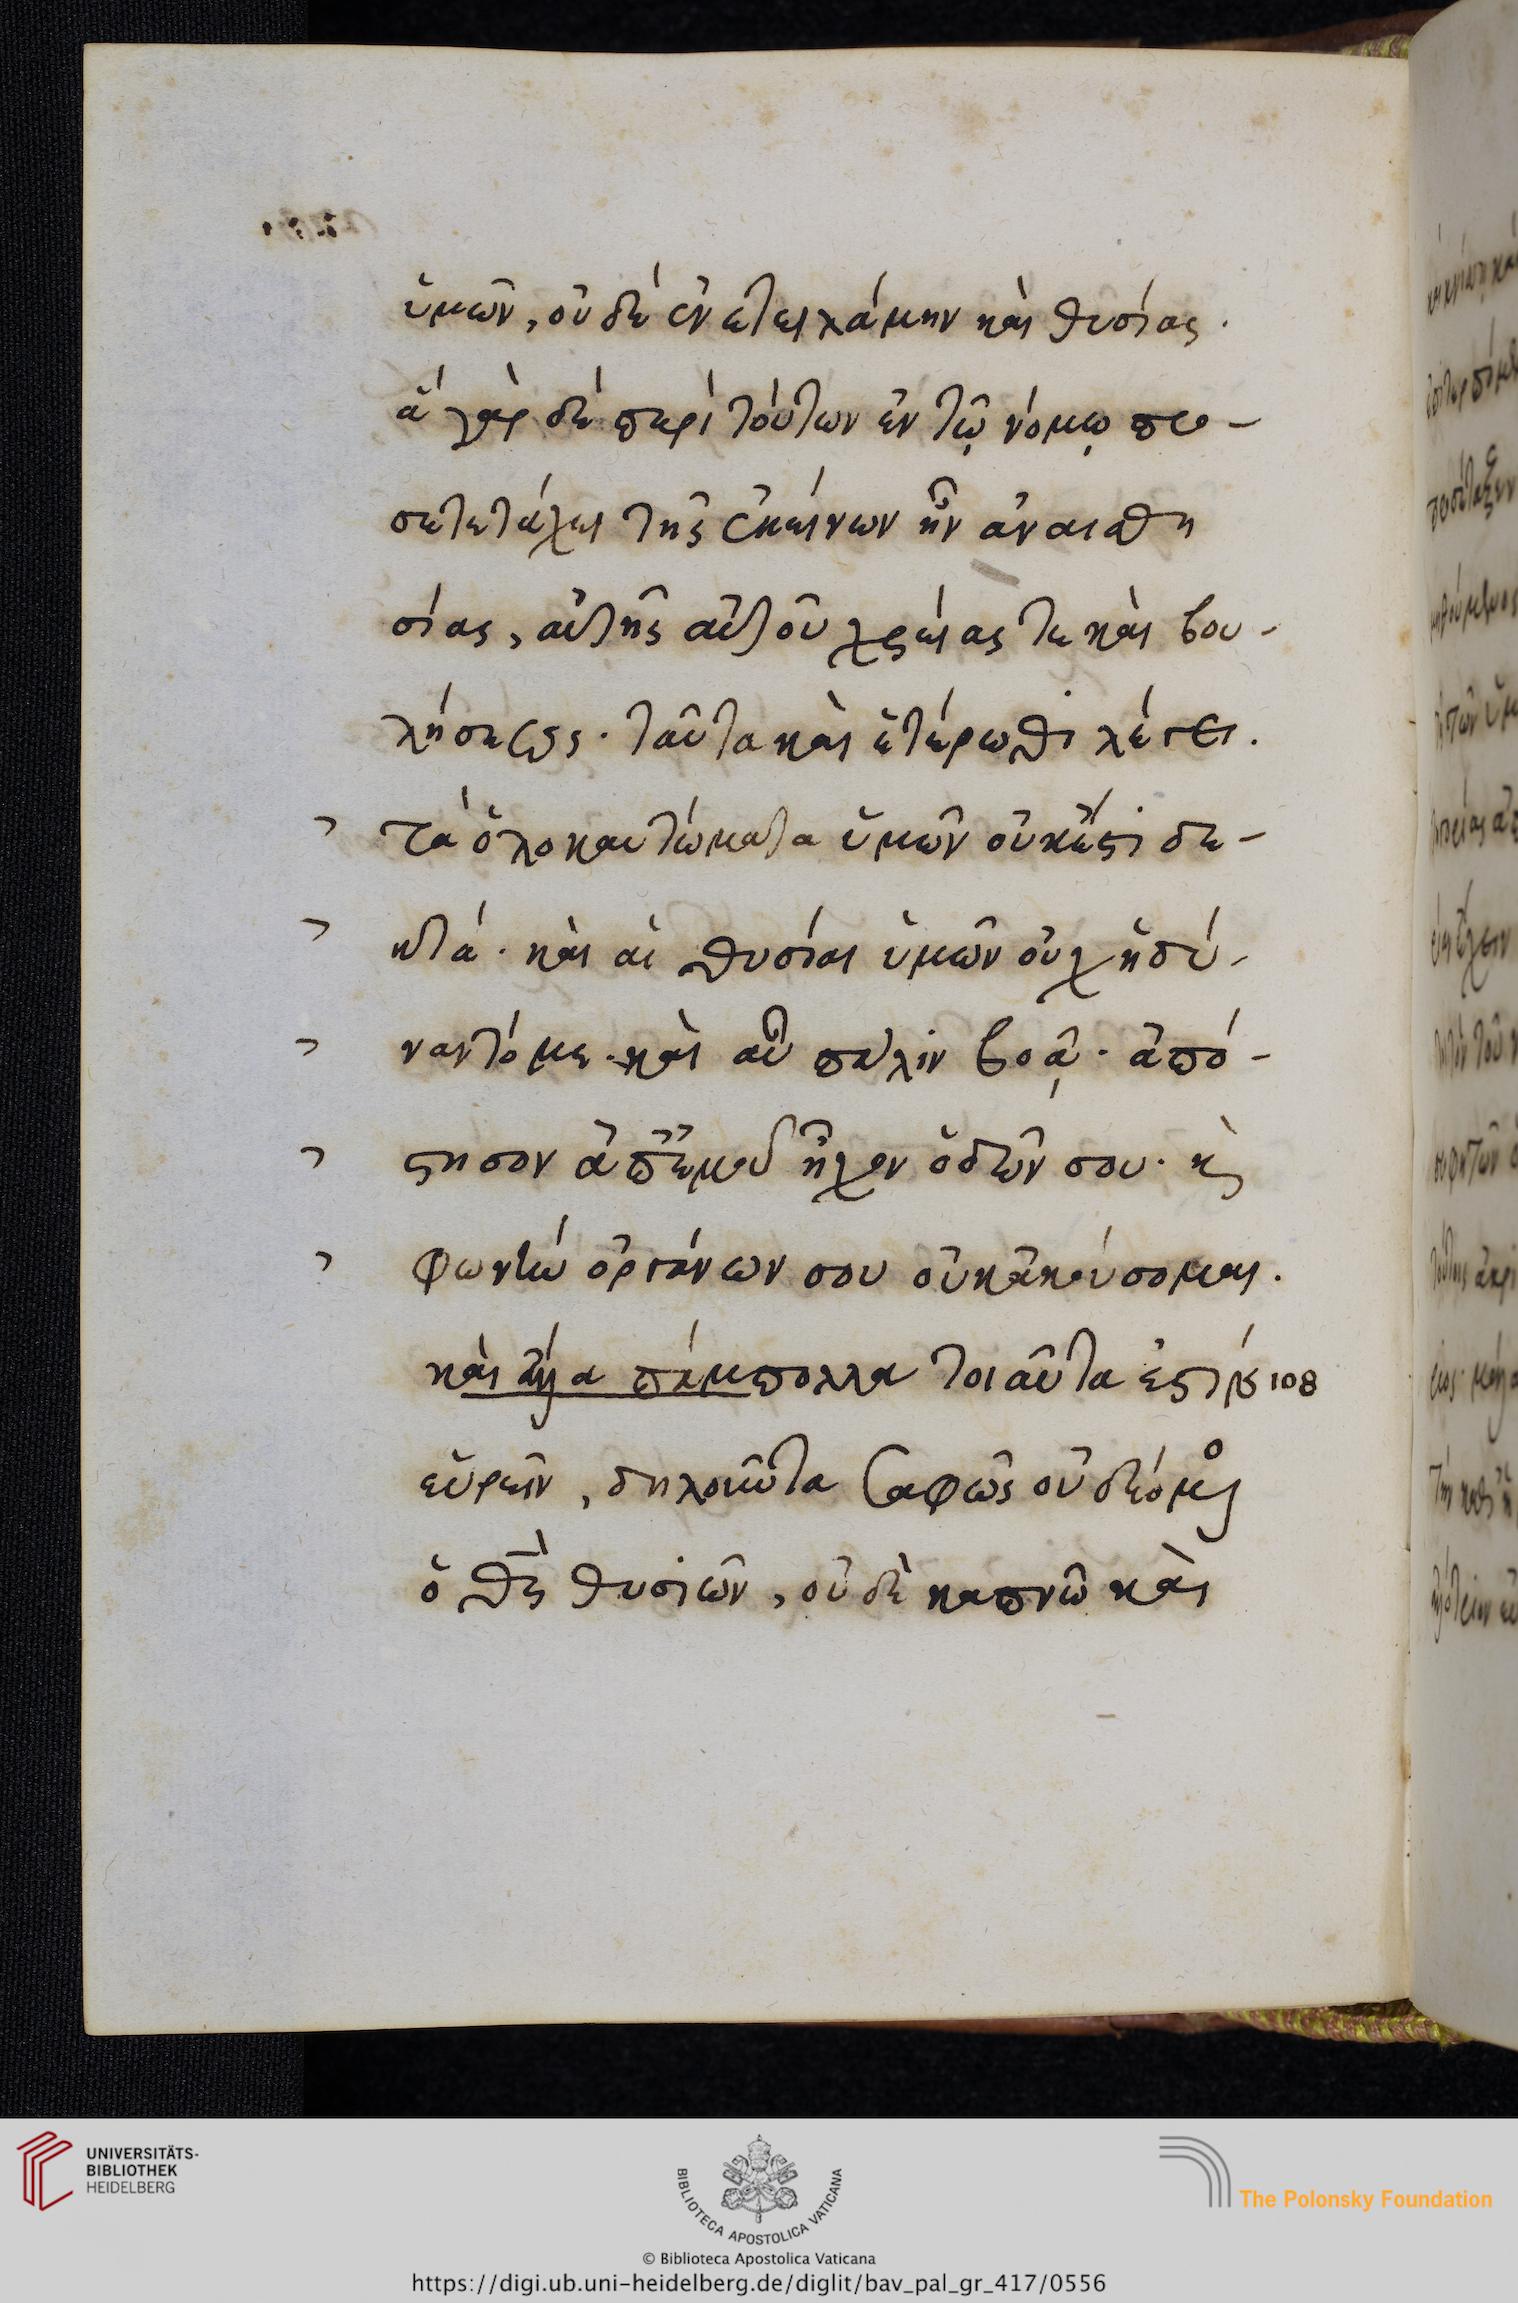 ὑμῶν, οὐδέ ἐνετειλάμην καὶ θυσίας.
ἅ γὰρ δέ περὶ τούτων ἐν τῷ νόμῳ προ-
σετετάχει τῆς ἐκείνων ἦν ἀναισθη
σίας, αὐτῆς αὐτοῦ χρείας τε καὶ βου-
λήσεως. ταῦτα καὶ ἑτέρωθι λέγει.
τά ὁλοκαυτώματα ὑμῶν οὐκ ἔστι δε-
κτά. καὶ αἱ θυσίαι ὑμῶν οὐχ ἥδύ-
ναντό με. καὶ αὖ πάλιν βοᾷ. ἀπό-
στησον ἀπ' ἐμοῦ ἦχον ὠδῶν σου. κὶ
φωνήν ὀργάνων σου οὐκ ἀκούσομαι.
καὶ ἄλλα πάμπολλα τοιαῦτα ἔστιν 108
εὑρεῖν, δηλοῦντα σαφῶς οὐ δεόμενος
ὁ θς θυσιῶν, οὐδὲ καπνῶ καὶ
UNIVERSITÄTS-
BIBLIOTHEK
HEIDELBERG
BIBLIOTECA APOSTOLICA VATICANA
The Polonsky Foundation
© Biblioteca Apostolica Vaticana
https://digi.ub.uni-heidelberg.de/diglit/bav_pal_gr_417/0556